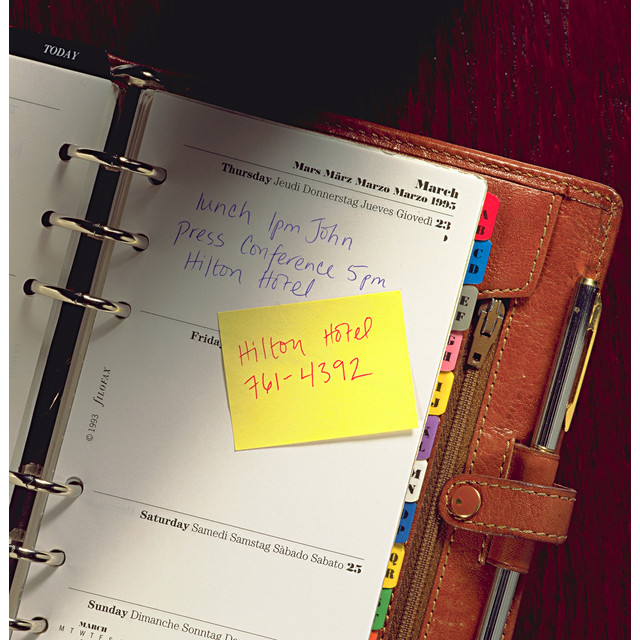 TODAY
March
Mars März Marzo Marzo 1995
Thursday Jeudi Donnerstag Jueves Giovedì 23
lunch 1pm John
Press Conference 5pm
Hilton Hotel
Frida
Hilton Hotel
761-4392
© 1993 filofax
Saturday Samedi Samstag Sàbado Sabato 25
Sunday Dimanche Sonntag Do
MARCH
M T W T F S
A B
C D
E F
G H
I J
K L
M N
O P
Q R